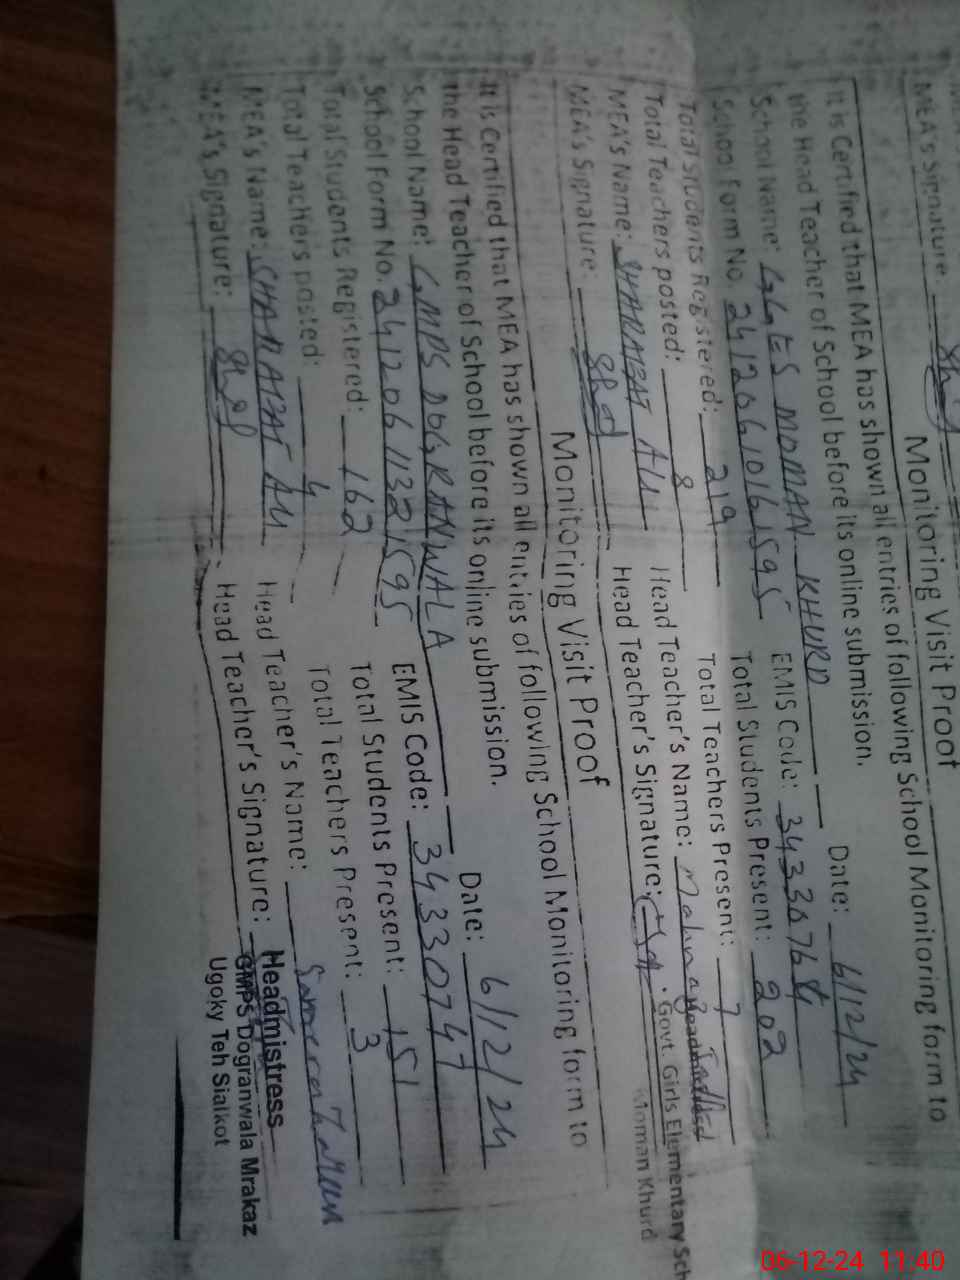 MEA's Signature:
Monitoring Visit Proof
It is Certified that MEA has shown all entries of following School Monitoring form to
the Head Teacher of School before its online submission.
School Name: GGES MOMAN KHURD Date: 6/12/24
School Form No. 24120610161595 EMIS Code:
Total Students Registered: 219 Total Students Present: 202
Total Teachers posted: 8 Total Teachers Present: 7
MEA's Name: SHARAFAT ALI Head Teacher's Name:
MEA's Signature: Head Teacher's Signature:
Govt. Girls Elementary Sch
Moman Khurd
Monitoring Visit Proof
It is Certified that MEA has shown all entries of following School Monitoring form to
the Head Teacher of School before its online submission.
School Name: GMPS DOGRANWALA Date: 6/12/24
School Form No. 24120611321595 EMIS Code: 34330747
Total Students Registered: 162 Total Students Present: 151
Total Teachers posted: 4 Total Teachers Present: 3
MEA's Name: SHARAFAT ALI Head Teacher's Name:
MEA's Signature: Head Teacher's Signature:
Headmistress
GMPS Dogranwala Mrakaz
Ugoky Teh Sialkot
06-12-24 11:40